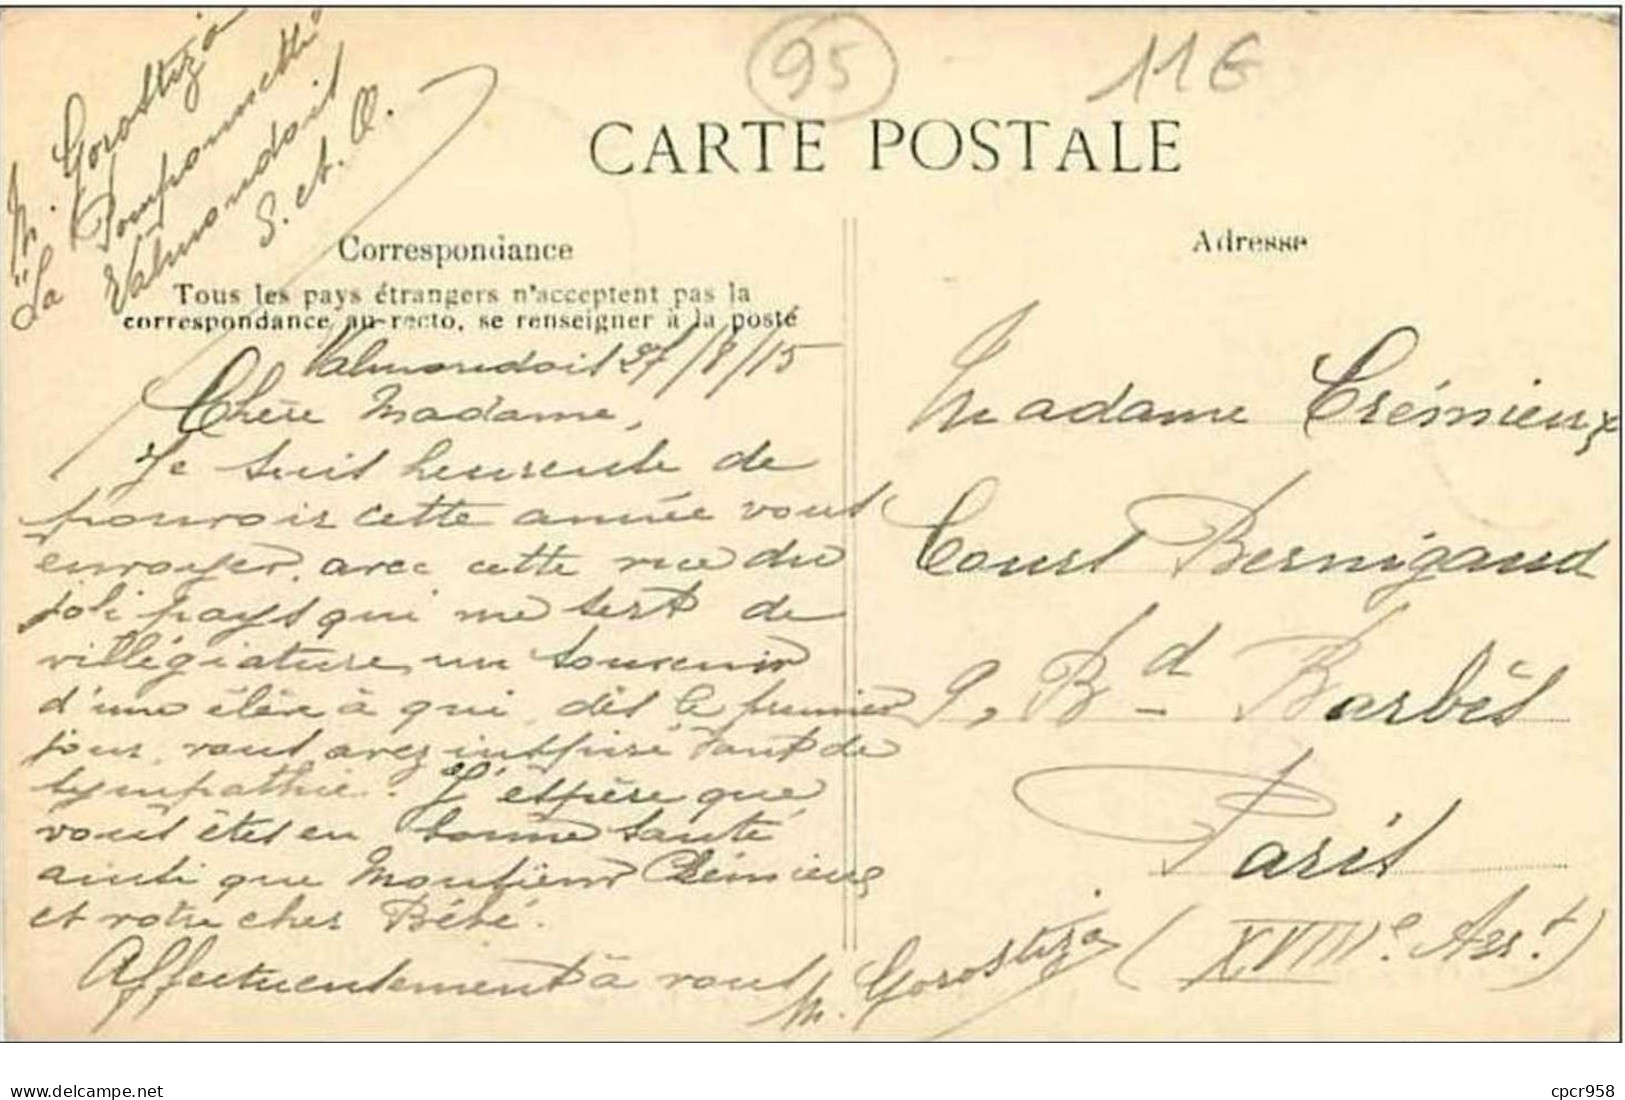 95
11€
CARTE POSTALE
M. Gorostiza
"La Pomponnette"
Valmondois
S. et. O.
Correspondance
Tous les pays étrangers n'acceptent pas la
correspondance au-recto, se renseigner à la poste
Valmondois 27/8/15
Chère Madame,
Je suis heureuse de
pouvoir cette année vous
envoyer, avec cette vue du
joli pays qui me sert de
villégiature, un souvenir
d'une élève à qui, dès le premier
jour, vous avez inspiré tant de
sympathie. J'espère que
vous êtes en bonne santé
ainsi que Monsieur Crémieux
et votre cher Bébé.
Affectueusement à vous
M. Gorostiza
Adresse
Madame Crémieux
Cours Bernigaud
9, Bd Barbès
Paris
(XVIIIe. Arrt.)
www.delcampe.net
cpcr958